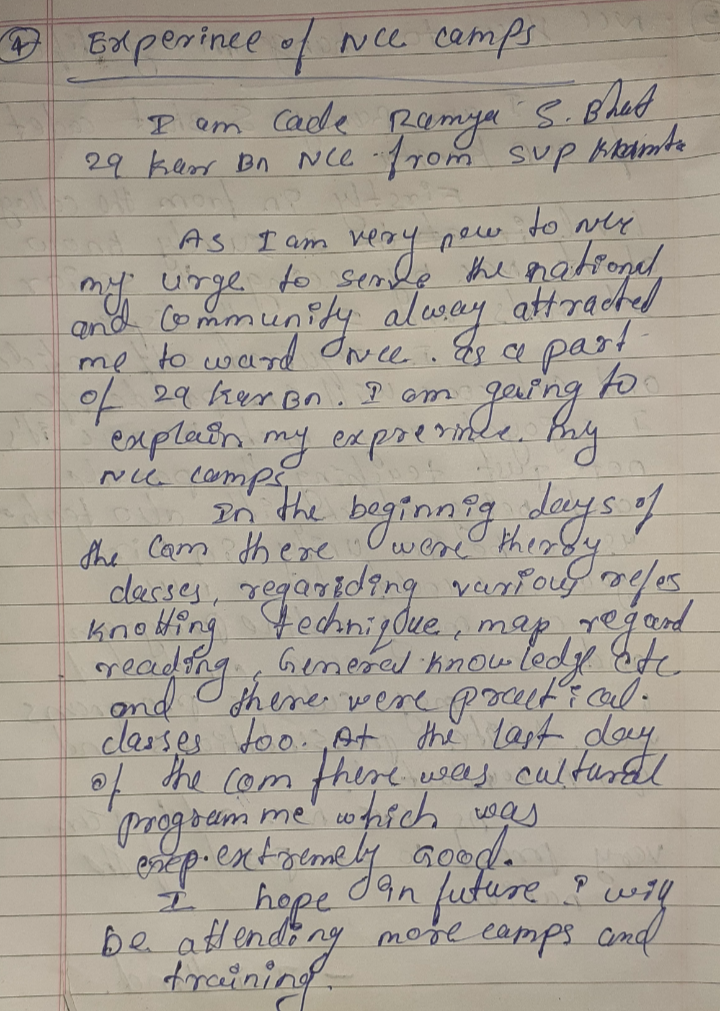 ④ Experince of NCC camps
I am Cade Ramya S. Bhat
29 Karr Bn NCC from SVP
As I am very new to NCC
my urge to serve the national
and Community alway attracted
me to ward NCC. as a part
of 29 Kar Bn. I am going to
explain my exprerince. my
NCC camps
In the beginnig days of
the Cam there were theroy
classes, regariding various
Knotting technique, map regard
reading, General Knowledge etc
and there were practical.
classes too. At the last day
of the Com there was cultural
programme which was
exep. extremely Good.
I hope In future I will
be attending more camps and
training.